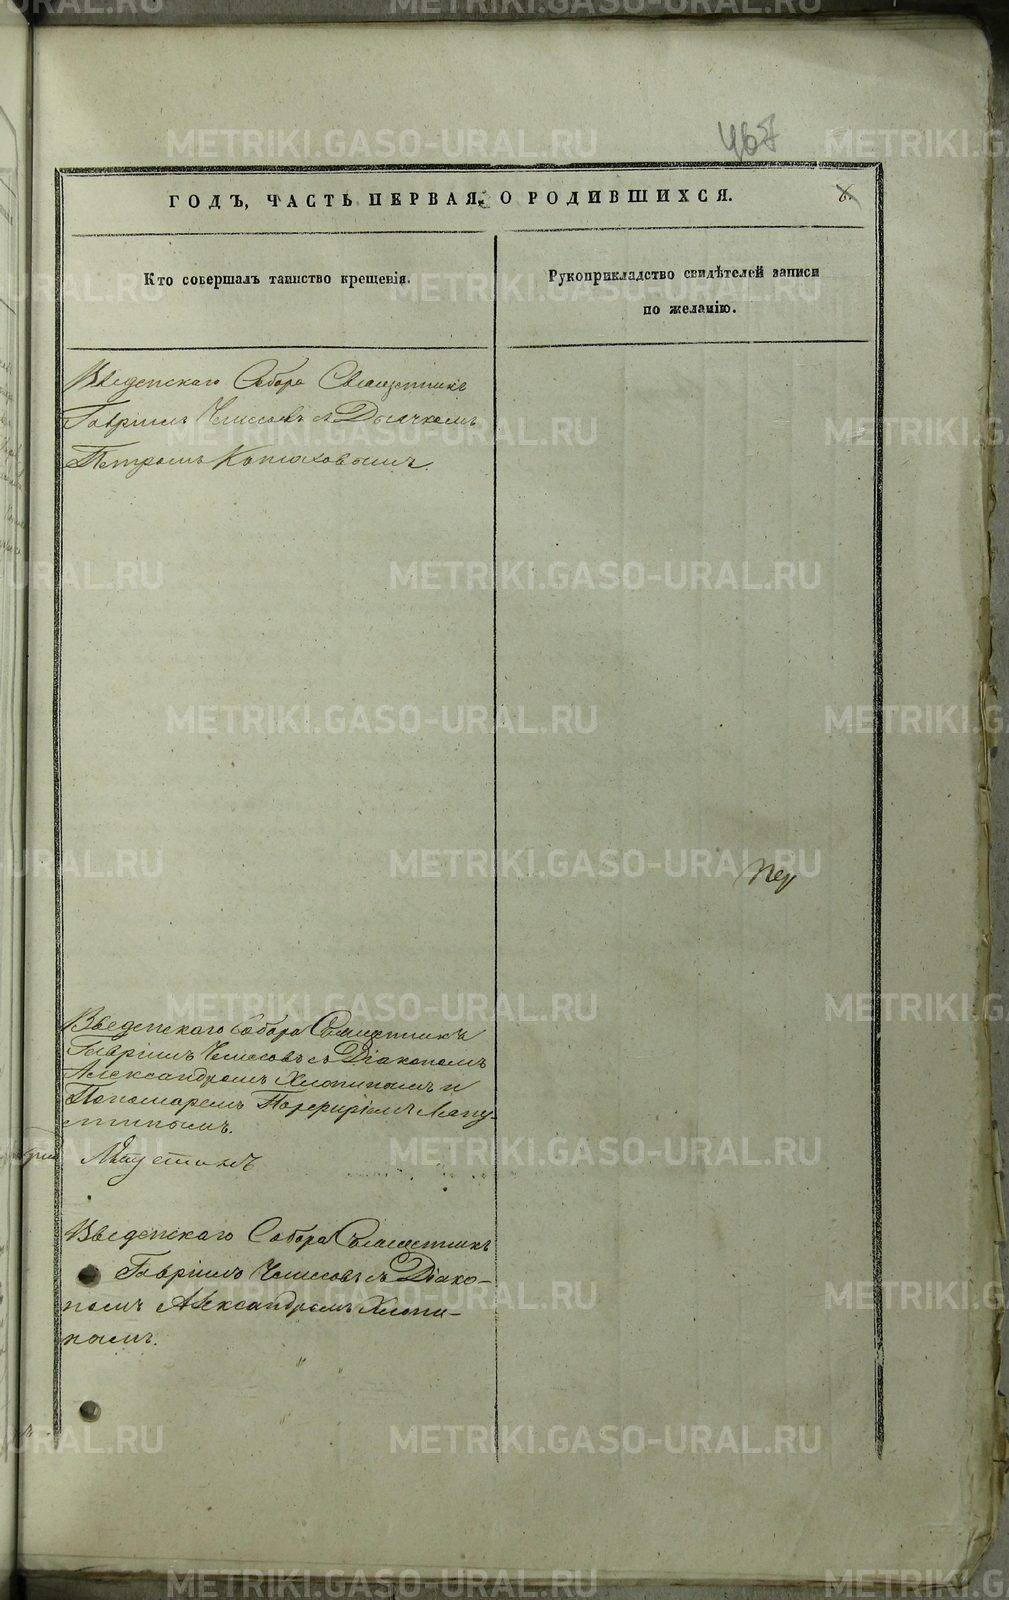 467
ГОДЪ, ЧАСТЬ ПЕРВАЯ, О РОДИВШИХСЯ.
8.
Кто совершалъ таинство крещенія.
Рукоприкладство свидѣтелей записи
по желанію.
Введенскаго Собора Священникъ
Гавріилъ Чемесовъ съ Дьячкомъ
Петромъ Конюховымъ.
Введенскаго собора Священникъ
Гавріилъ Чемесовъ съ Діакономъ
Александромъ Хлопинымъ и
Пономаремъ Порфиріемъ Лапу-
тинымъ.
Введенскаго Собора Священникъ
Гавріилъ Чемесовъ съ Діако-
номъ Александромъ Хлопи-
нымъ.
METRIKI.GASO-URAL.RU